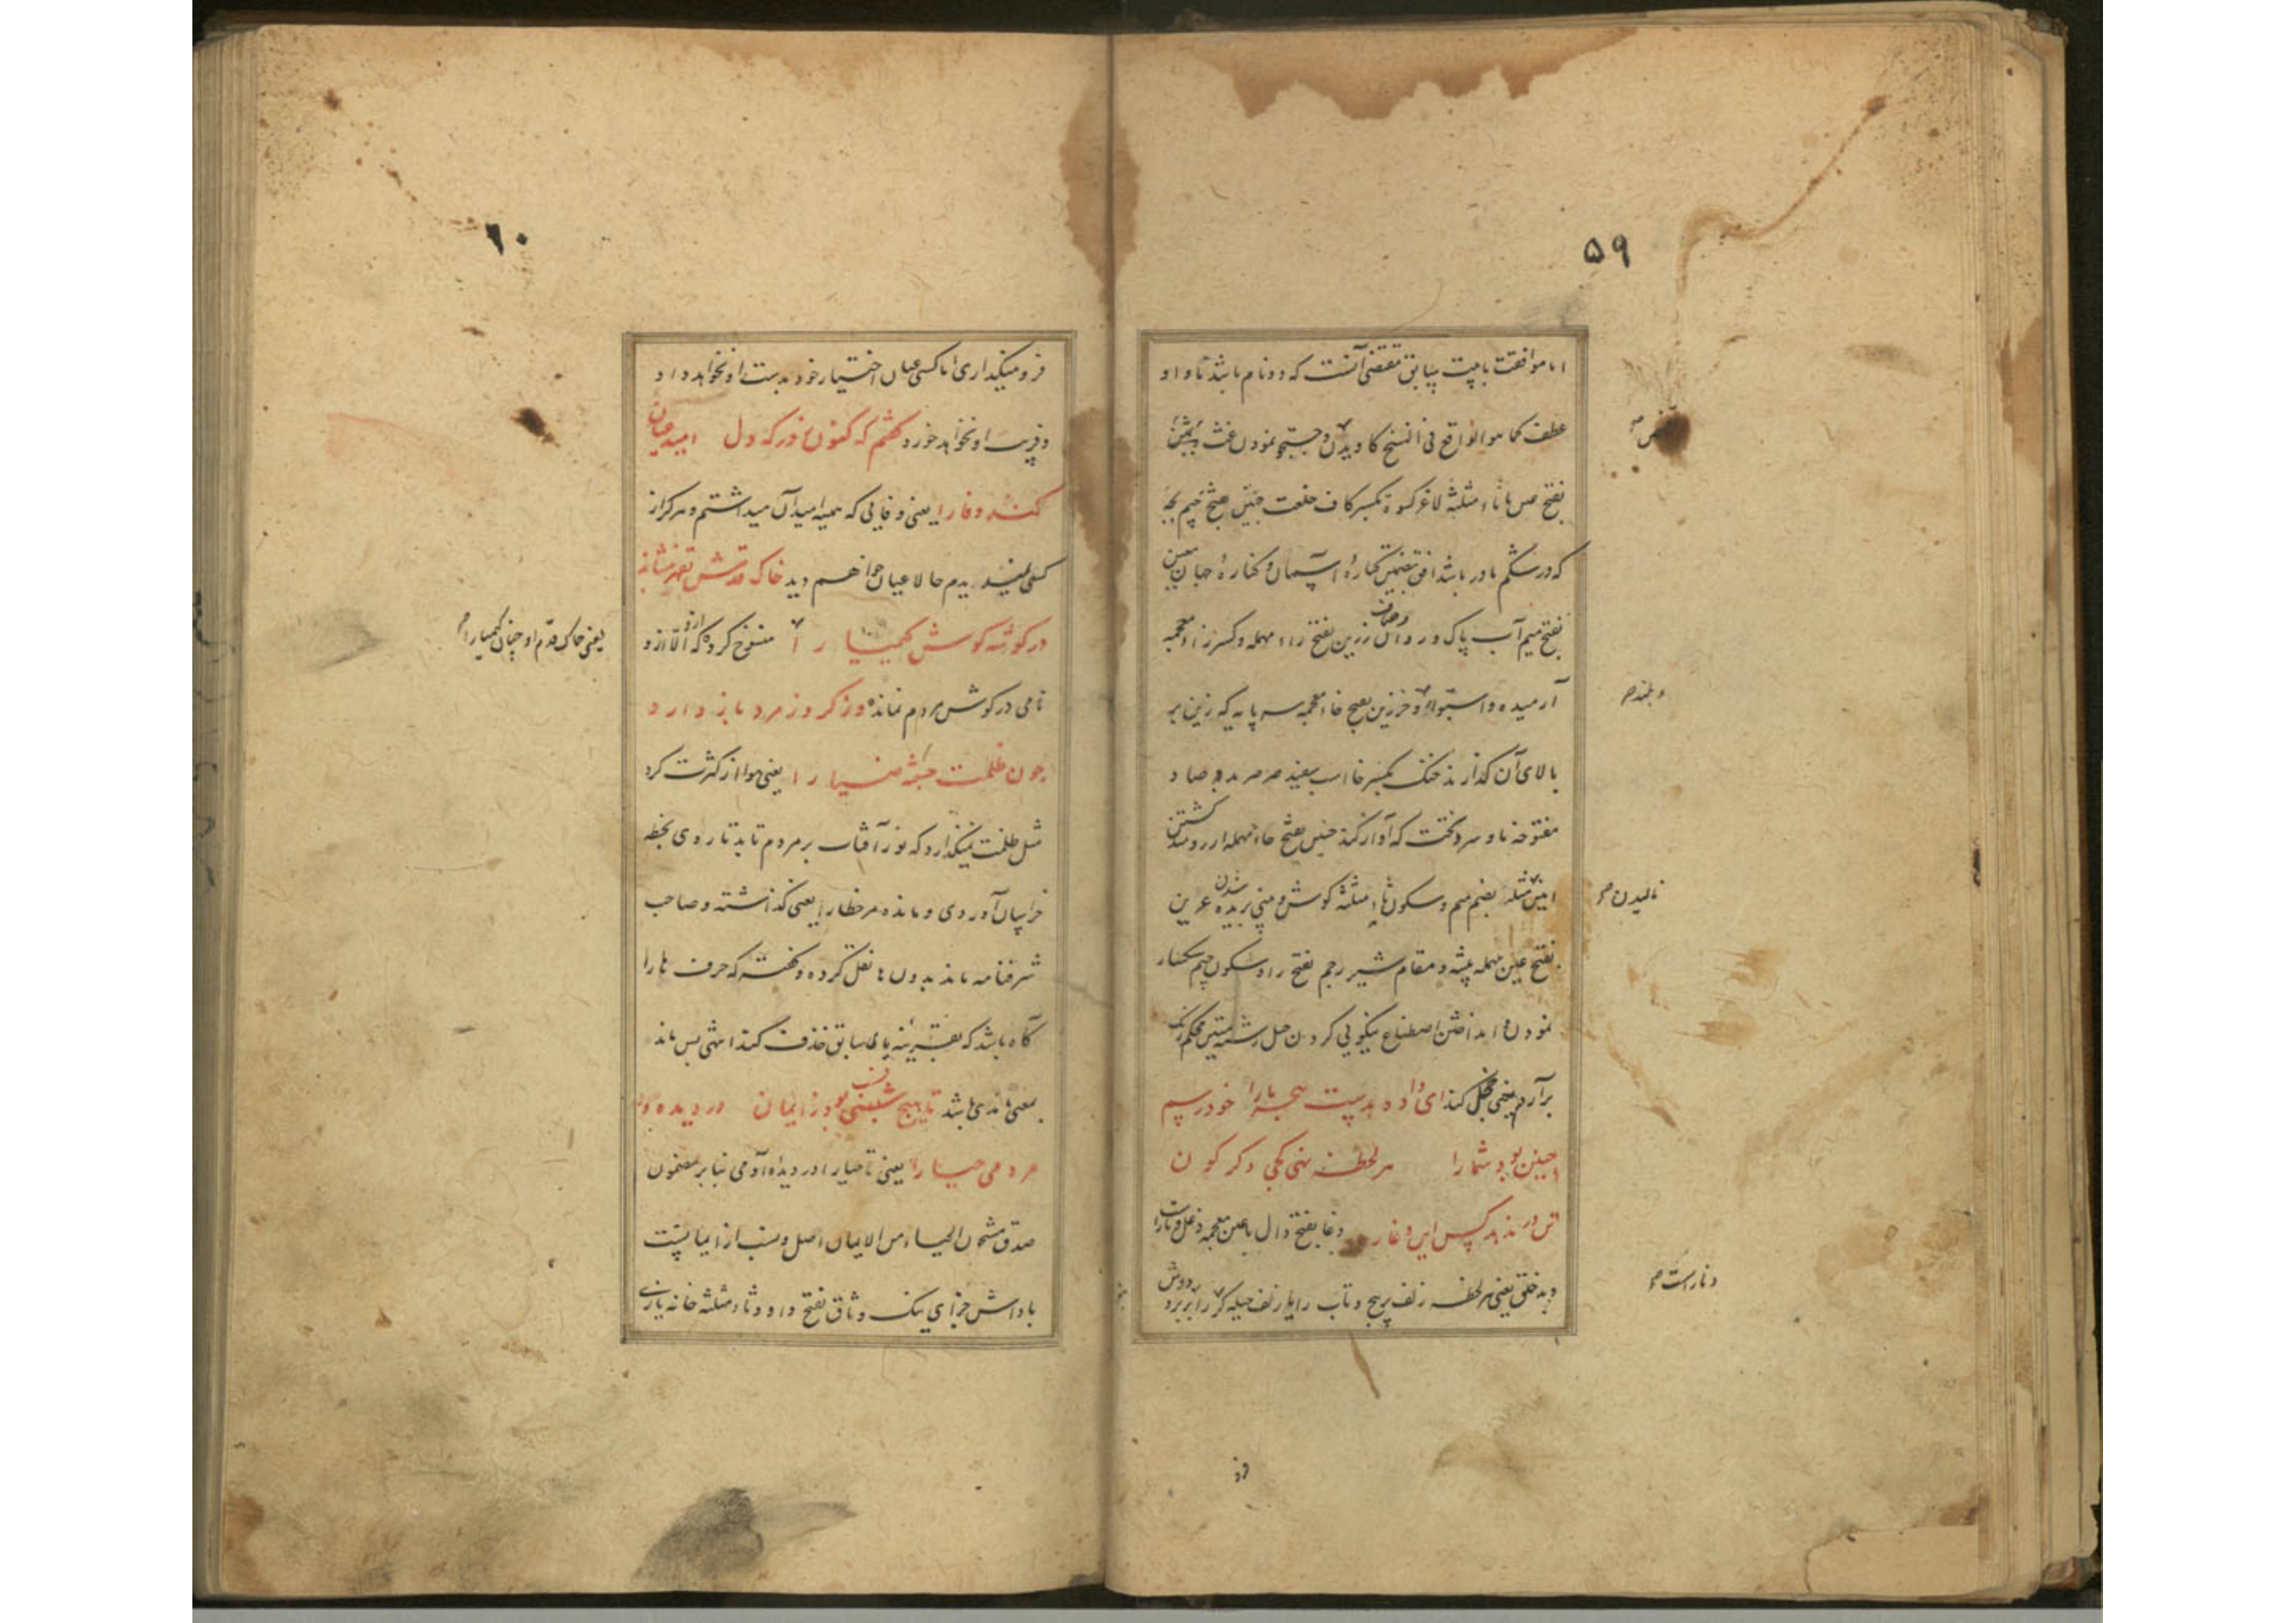 ۵۹
اما موافقت با بیت سابق مقتضی آنست که دو نام باشد تا واو
عطف کما هو الواقع فی النسخ کاویدن و جستجو نمودن غث
بفتح ثاء مثلثه لاغر کسوة بکسر کاف خلعت جنین بفتح جیم بچه
که در شکم مادر باشد افق بضمتین کنارهٔ آسمان و کنارهٔ جهان معین
بفتح میم آب پاک و روان رزین بفتح راء مهمله و کسر زاء معجمه
آرمیده و استوار و خرزین بفتح خاء معجمه سه پایه که زین بر
بالای آن گذارند خنک بکسر خا اسب سفید صرصر بدو صاد
مفتوحه باد سرد سخت که آواز کند حنین بفتح حاء مهمله آرزومند گشتن
مثله بضم میم و سکون ثاء مثلثه گوش و بینی بریده شدن عرین
بفتح عین مهمله بیشه و مقام شیر رجم بفتح را و سکون جیم سنگسار
نمودن و انداختن اصطناع نیکویی کردن حبل رشته متین محکم
برآرد یعنی خجل کند ای داده بدست هجر ما را خود رسم
چنین بود شما را هر لحظه نهی کجی دگرگون
تن در ندهد کس این دغا را دغا بفتح دال با غین معجمه دغل و ناراست
و بدخلق یعنی هر لحظه زلف پر پیچ و تاب را یا زلف حیله گر را بر دوش
و بلند صح
نالیدن صح
و ناراست صح
فر
۶۰
فرو میگذاری اما کسی عنان اختیار خود بدست او نخواهد داد
و فریب او نخواهد خورد گفتم که کنون زدرکه دل امید عیان
کنند وفا را یعنی وفایی که همیشه امید آن میداشتم و هرگز از
کسی ندیدم حالا عیان خواهم دید خاک قدمش
در گوشه گوش کیمیا را منسوخ کرده که از او الا از و
نامی در گوش مردم نمانده وز گرد ز مرد باز دارد
چون ظلمت چشمه ضیا را یعنی هوا از کثرت گرد
مثل ظلمت نمیگذارد که نور آفتاب بر مردم تابد تا روی بخطه
خراسان آوردی و مانده مر خطا را یعنی گذاشته و صاحب
شرفنامه ماند بدون ها نقل کرده و گفته که حرف ها را
گاه باشد که بقرینه یای سابق حذف کنند انتهی پس ماند
بمعنی ماندی باشد تا هیچ نسب بود ز ایمان در دیده
مردمی حیا را یعنی تا حیا را در دیده آدمی بنا بر مضمون
صدق مشحون الحیاء من الایمان اصل و نسب از ایمانست
پاداش جزای نیک وثاق بفتح واو و ثاء مثلثه خانه
یعنی خاک قدم او چنان کیمیا را صح